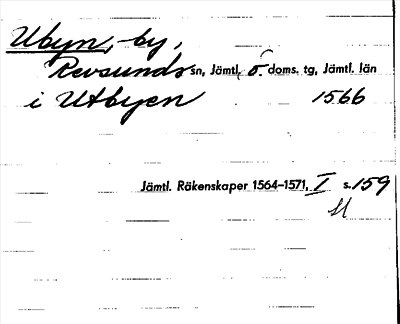 Ubyn, -by,
Revsunds sn, Jämtl. ö. doms. tg, Jämtl. län
i Utbyen 1566
Jämtl. Räkenskaper 1564–1571, I s. 159